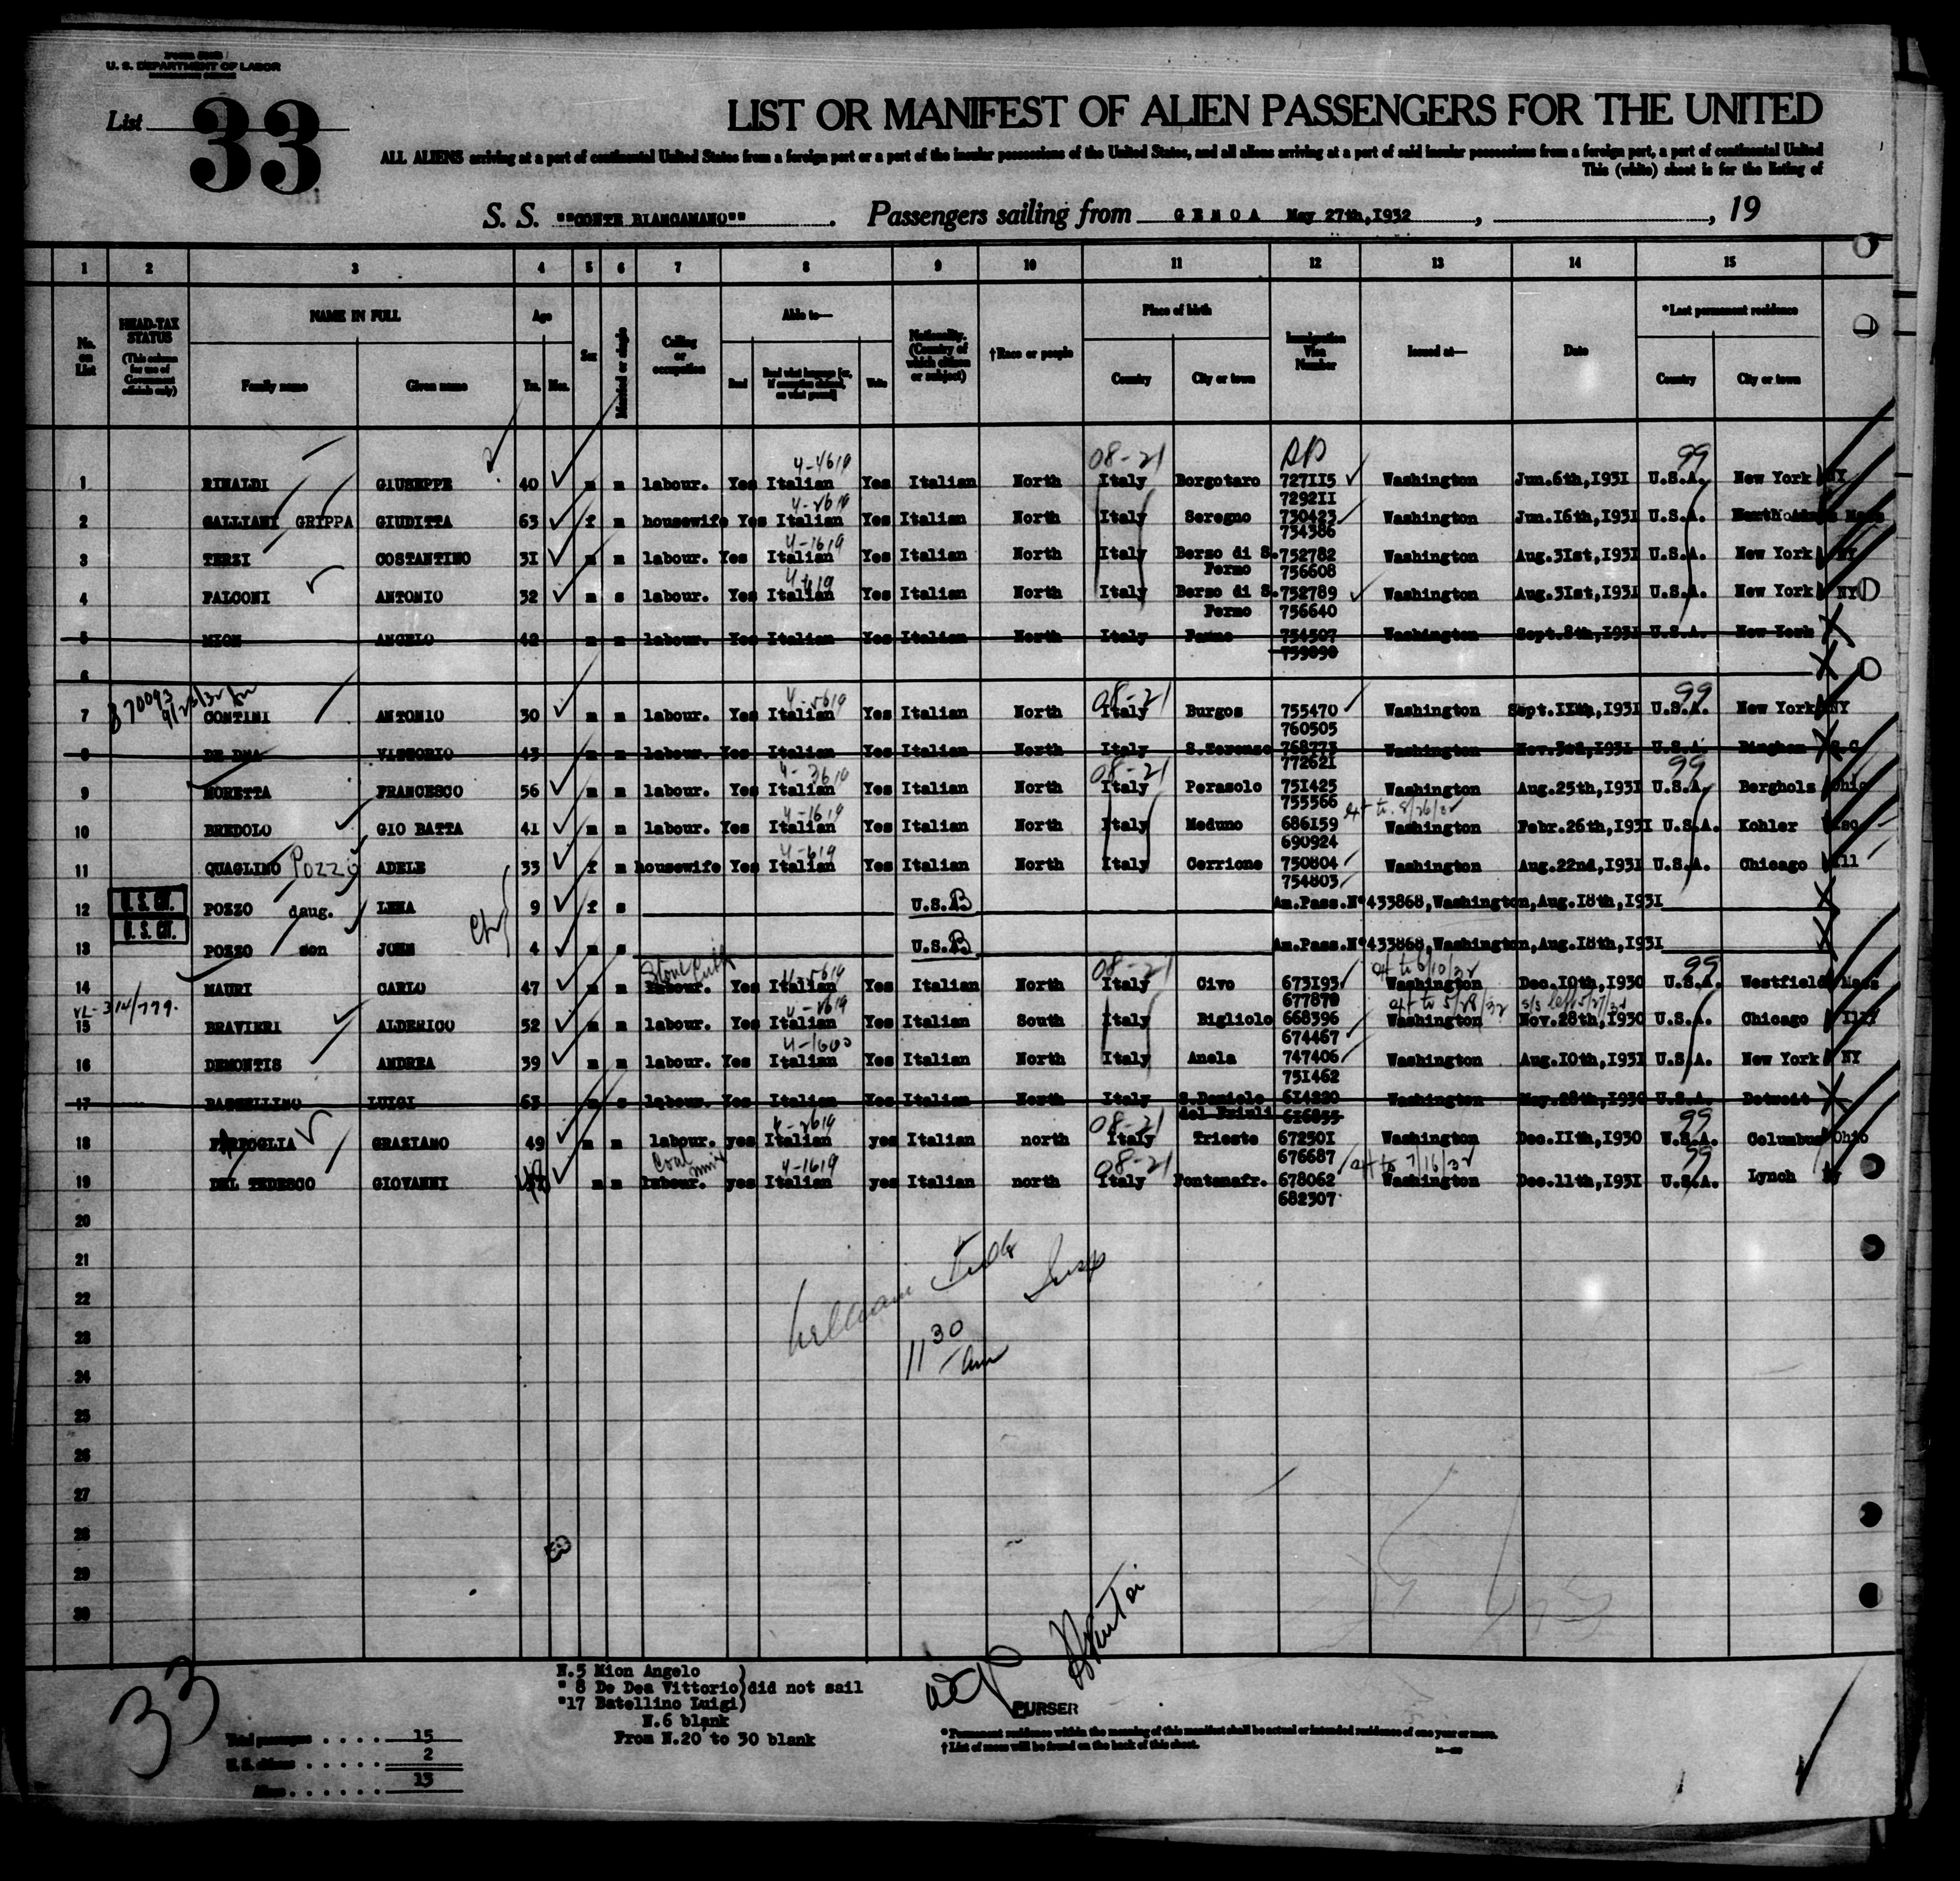 U. S. DEPARTMENT OF LABOR
List 33
LIST OR MANIFEST OF ALIEN PASSENGERS FOR THE UNITED
ALL ALIENS arriving at a port of continental United States from a foreign port or a port of the insular possessions of the United States, and all aliens arriving at a port of said insular possessions from a foreign port, a port of continental United
This (white) sheet is for the listing of
S. S. "CONTE BIANCAMANO". Passengers sailing from GENOA May 27th,1932, , 19
1 2 3 4 5 6 7 8 9 10 11 12 13 14 15
No. on List
HEAD-TAX STATUS (This column for use of Government officials only)
NAME IN FULL Family name Given name
Age Yrs. Mos.
Sex
Married or single
Calling or occupation
Able to— Read Read what language [or, if exemption claimed, on what ground] Write
Nationality. (Country of which citizen or subject)
†Race or people
Place of birth Country City or town
Immigration Visa Number
Issued at—
Date
*Last permanent residence Country City or town
4-4619 08-21 99
1 RINALDI GIUSEPPE 40 m m labour. Yes Italian Yes Italian North Italy Borgotaro 727115 Washington Jun.6th,1931 U.S.A. New York NY
729211
2 GALLIANI GRIPPA GIUDITTA 63 f m housewife Yes Italian Yes Italian North Italy Seregno 730423 Washington Jun.16th,1931 U.S.A. Mass
734386
4-1619
3 TERZI COSTANTINO 31 m m labour. Yes Italian Yes Italian North Italy Berzo di S. Fermo 752782 Washington Aug.31st,1931 U.S.A. New York NY
756608
4 FALCONI ANTONIO 32 m s labour. Yes Italian Yes Italian North Italy Berzo di S. Fermo 752789 Washington Aug.31st,1931 U.S.A. New York NY
756640
5 MION ANGELO 48 m m labour. Yes Italian Yes Italian North Italy 754507 Washington Sept.8th,1931 U.S.A. New York
759090
6
4-5619 08-21 99
7 CONTINI ANTONIO 30 m m labour. Yes Italian Yes Italian North Italy Burgos 755470 Washington Sept.11th,1931 U.S.A. New York NY
760505
8 DE DEA VITTORIO 43 m m labour. Yes Italian Yes Italian North Italy 768773 Washington Nov.3rd,1931 U.S.A.
772621
4-3619 08-21 99
9 MORETTA FRANCESCO 56 m m labour. Yes Italian Yes Italian North Italy Perasolo 751425 Washington Aug.25th,1931 U.S.A. Berghols Ohio
755566
4-1619
10 BREDOLO GIO BATTA 41 m m labour. Yes Italian Yes Italian North Italy Meduno 686159 Washington Febr.26th,1931 U.S.A. Kohler
690924
4-619
11 QUAGLINO Pozzo ADELE 33 f m housewife Yes Italian Yes Italian North Italy Cerrione 750804 Washington Aug.22nd,1931 U.S.A. Chicago Ill
754803
12 U. S. CIT. POZZO daug. LENA 9 f s U.S. Am.Pass.N°433868,Washington,Aug.18th,1931
13 U. S. CIT. POZZO son JOHN 4 m s U.S. Am.Pass.N°433868,Washington,Aug.18th,1931
4-5619 08-21 99
14 MAURI CARLO 47 m m labour. Yes Italian Yes Italian North Italy Civo 673193 Washington Dec.10th,1930 U.S.A. Westfield Mass
677870
15 BRAVIERI ALDERICO 52 m m labour. Yes Italian Yes Italian South Italy Bigliolo 668396 Washington Nov.28th,1930 U.S.A. Chicago Ill
674467
16 DEMONTIS ANDREA 39 m m labour. Yes Italian Yes Italian North Italy Anela 747406 Washington Aug.10th,1931 U.S.A. New York NY
751462
17 LUIGI 63 m s labour. Yes Italian Yes Italian North Italy S.Daniele del Friuli Washington May.28th,1930 U.S.A. Detroit
4-2619 08-21 99
18 GRASIANO 49 m m labour. yes Italian yes Italian north Italy Trieste 672501 Washington Dec.11th,1930 U.S.A. Columbus Ohio
676687
4-1619 08-21 99
19 DEL TEDESCO GIOVANNI m m labour. yes Italian yes Italian north Italy Fontanafr. 678062 Washington Dec.11th,1931 U.S.A. Lynch
682307
20
21
22
23
24
25
26
27
28
29
30
11 30 am
33
N.5 Mion Angelo )
" 8 De Dea Vittorio)did not sail
"17 Batellino Luigi)
N.6 blank
From N.20 to 30 blank
PURSER
Total passengers . . . . 15
U. S. citizens . . . . . 2
Aliens . . . . . . 13
* Permanent residence within the meaning of this manifest shall be actual or intended residence of one year or more.
† List of races will be found on the back of this sheet.